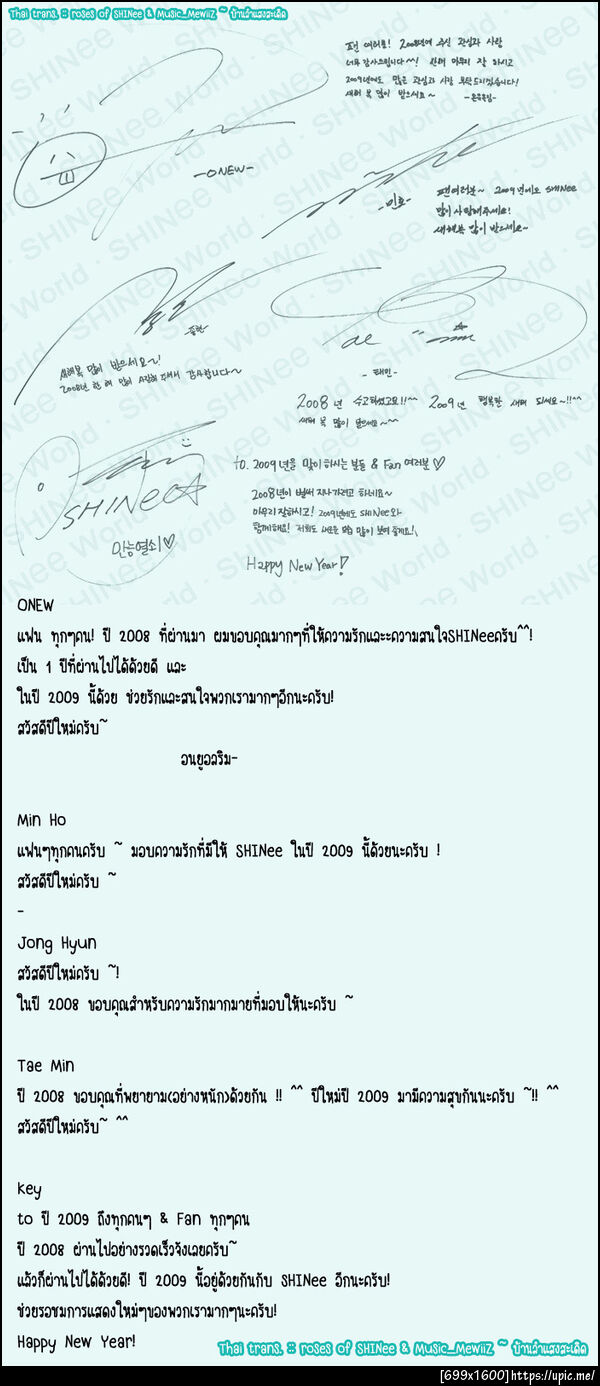 Thai trans. :: roses of SHINee & Music_MewiiZ ~ บ้านลำแสงสะเด็ด
팬 여러분! 2008년에 주신 관심과 사랑
너무 감사드립니다^^! 한해 마무리 잘 하시고
2009년에도 많은 관심과 사랑 부탁드리겠습니다!
새해 복 많이 받으세요~
-온유올림-
-ONEW-
-민호-
팬여러분~ 2009년에도 SHINee
많이 사랑해주세요!
새해복 많이 받으세요~
-종현-
새해복 많이 받으세요~!
2008년 한 해 많이 사랑해 주셔서 감사합니다~
Tae
-태민-
2008년 수고하셨고요!!^^ 2009년 행복한 새해 되세요~!!^^
새해 복 많이 받으세요~^^
SHINee
만능열쇠♡
to. 2009년을 맞이 하시는 분들 & Fan 여러분♡
2008년이 벌써 지나가려고 하네요~
마무리 잘하시고! 2009년에도 SHINee와
함께해요! 저희도 새로운 모습 많이 보여 줄게요!
Happy New Year!
ONEW
แฟน ทุกๆคน! ปี 2008 ที่ผ่านมา ผมขอบคุณมากๆที่ให้ความรักและะความสนใจSHINeeครับ^^!
เป็น 1 ปีที่ผ่านไปได้ด้วยดี และ
ในปี 2009 นี้ด้วย ช่วยรักและสนใจพวกเรามากๆอีกนะครับ!
สวัสดีปีใหม่ครับ~
อนยูอลริม-
Min Ho
แฟนๆทุกคนครับ ~ มอบความรักที่มีให้ SHINee ในปี 2009 นี้ด้วยนะครับ !
สวัสดีปีใหม่ครับ ~
-
Jong Hyun
สวัสดีปีใหม่ครับ ~!
ในปี 2008 ขอบคุณสำหรับความรักมากมายที่มอบให้นะครับ ~
Tae Min
ปี 2008 ขอบคุณที่พยายาม(อย่างหนัก)ด้วยกัน !! ^^ ปีใหม่ปี 2009 มามีความสุขกันนะครับ ~!! ^^
สวัสดีปีใหม่ครับ~ ^^
Key
to ปี 2009 ถึงทุกคนๆ & Fan ทุกๆคน
ปี 2008 ผ่านไปอย่างรวดเร็วจังเลยครับ~
แล้วก็ผ่านไปได้ด้วยดี! ปี 2009 นี้อยู่ด้วยกันกับ SHINee อีกนะครับ!
ช่วยรอชมการแสดงใหม่ๆของพวกเรามากๆนะครับ!
Happy New Year!
Thai trans. :: roses of SHINee & Music_MewiiZ ~ บ้านลำแสงสะเด็ด
[699x1600]https://upic.me/